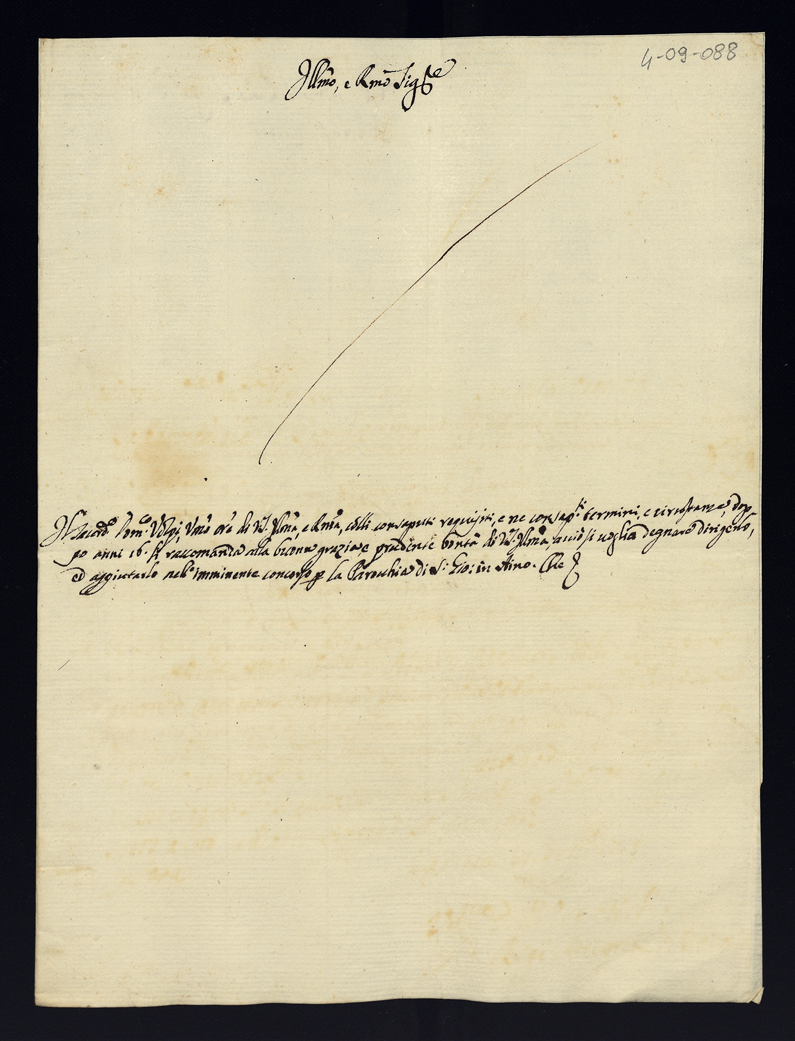 4-09-088
Illmo, e Rmo Sigre
Il Sacerd.e Dom.co Volpi, Umo ore di V.S. Illma, e Rma, colli consaputi requisiti, e ne consap.ti termini, e circostanze, dop-
po anni 16. si raccomanda alla buona grazia e bontà di V.S. Illma acciò si voglia degnare dirigerlo,
ed aggiutarlo nell'imminente concorso p la Parochia di S: Gio: in Aino. Che